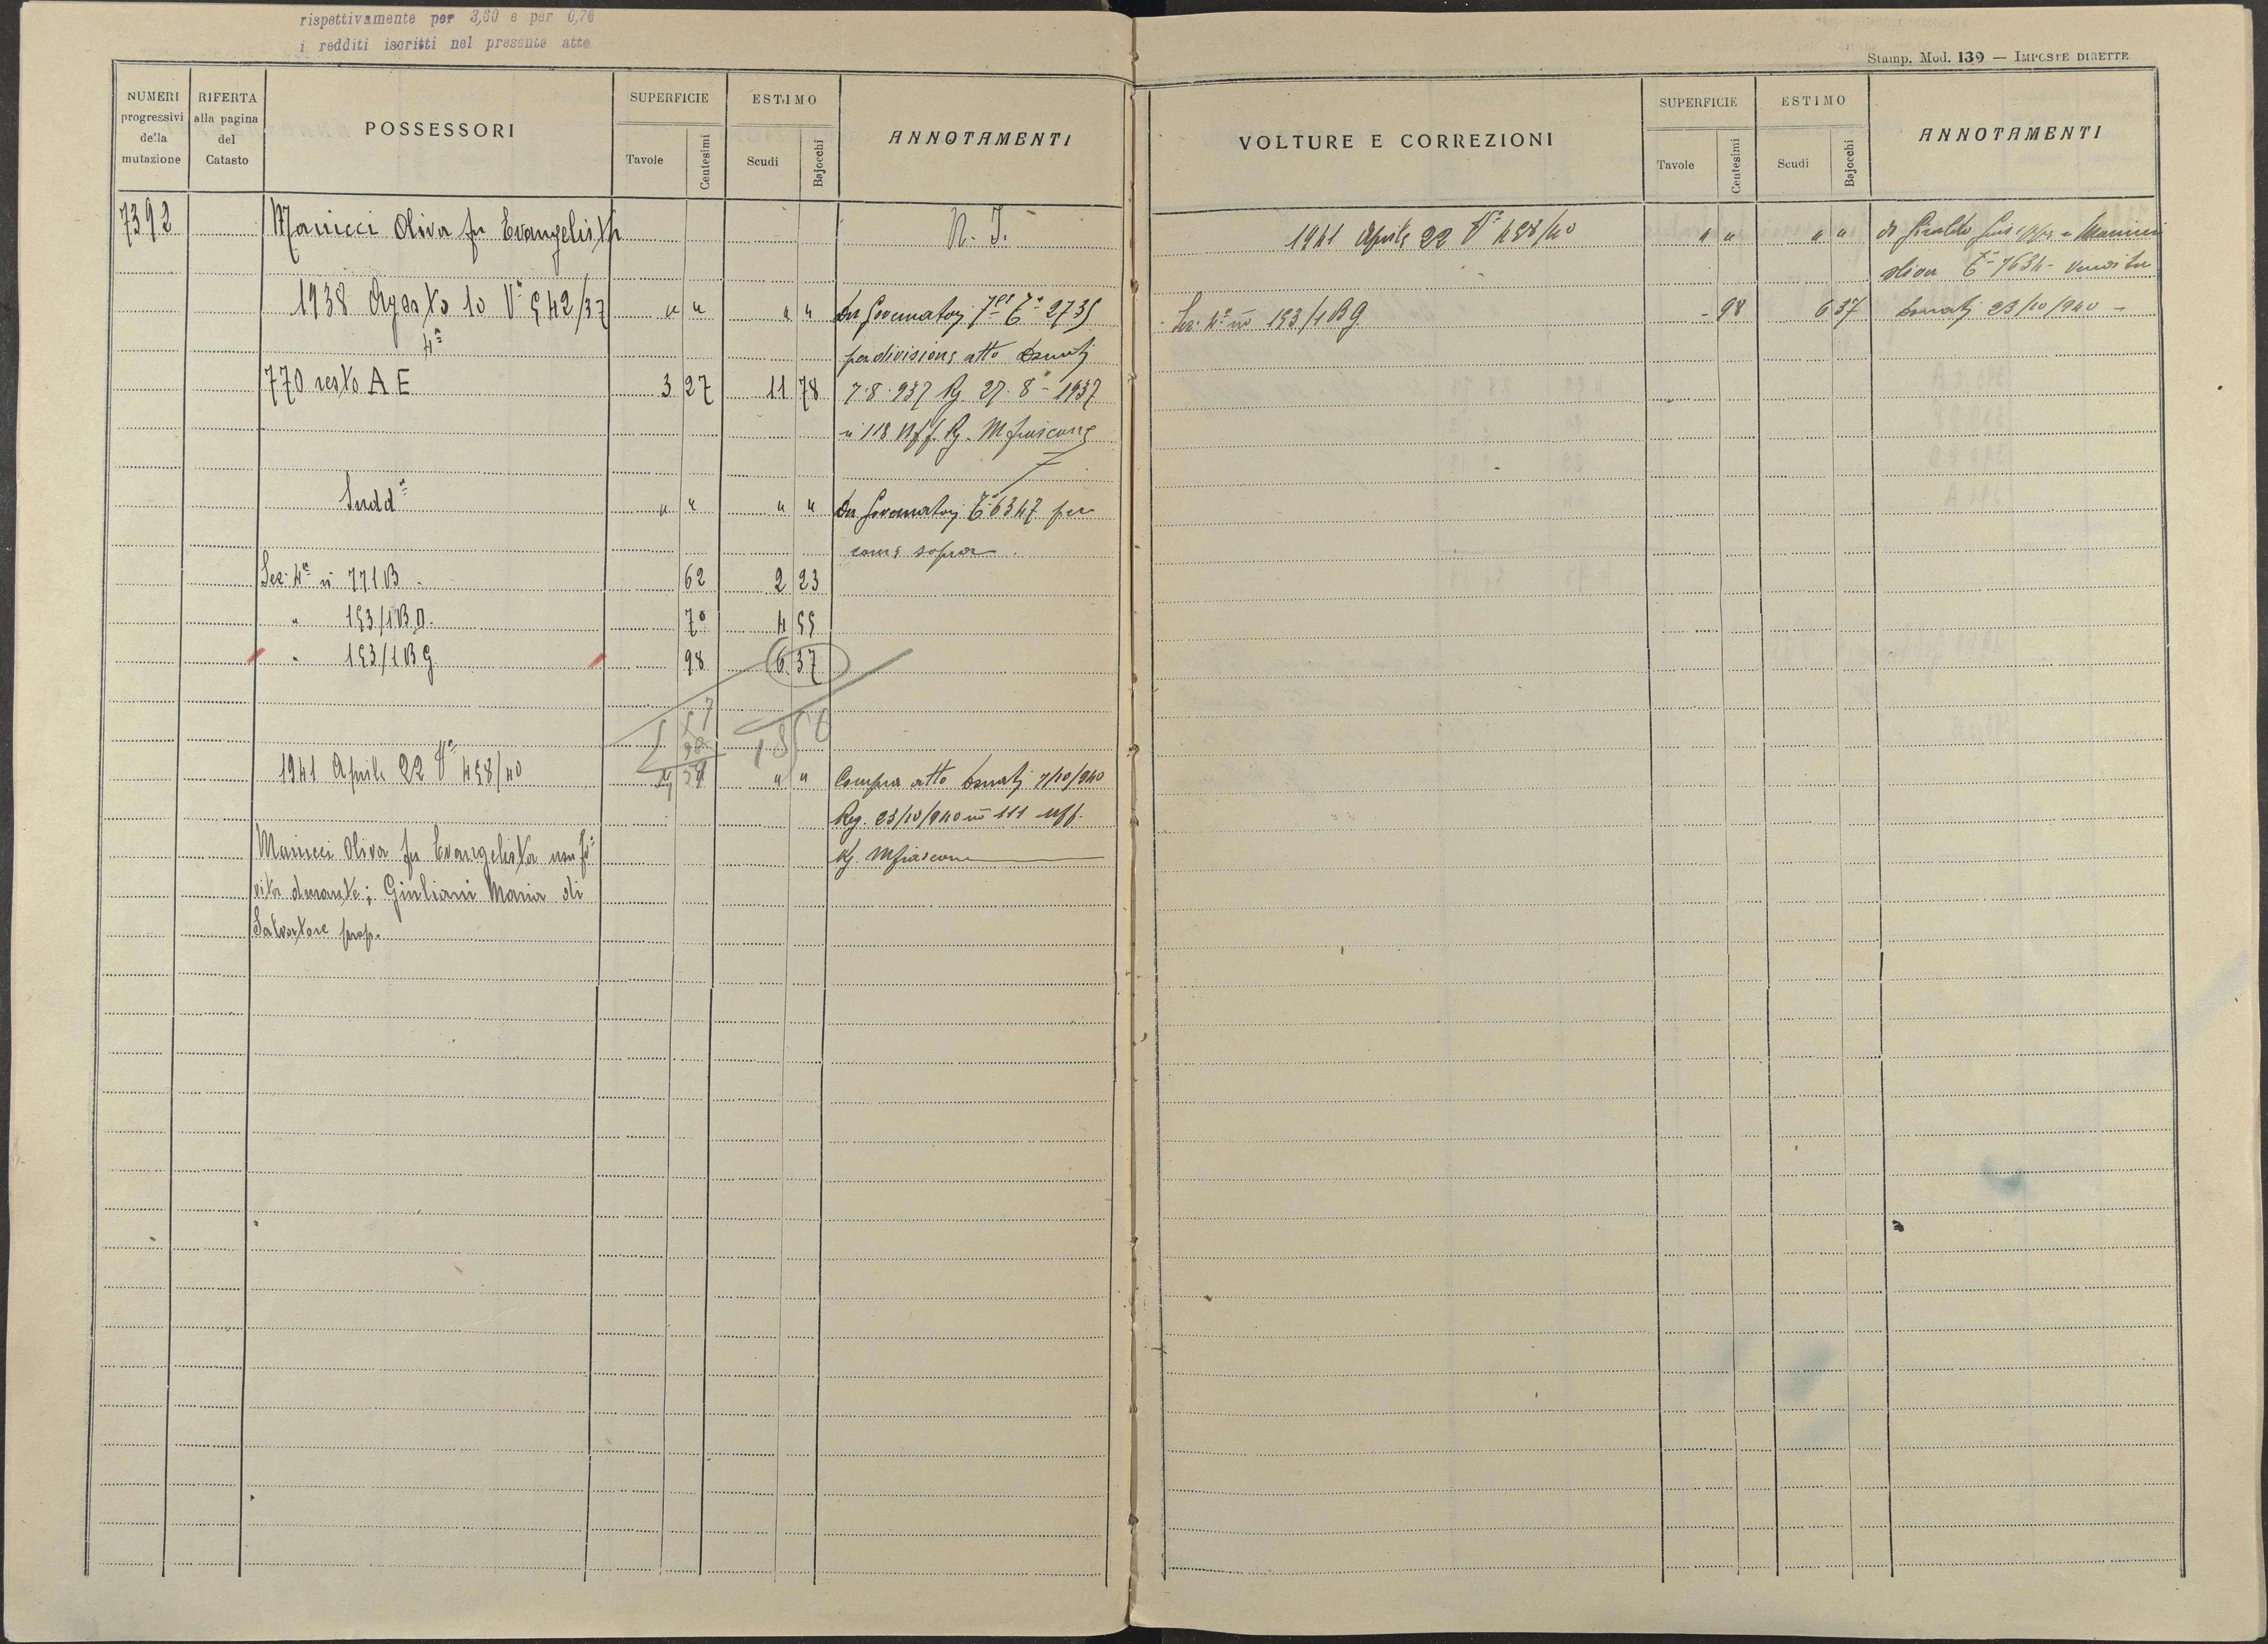 rispettivamente per 3,60 e per 0,76
i redditi iscritti nel presente atto
NUMERI progressivi della mutazione
RIFERTA alla pagina del Catasto
POSSESSORI
SUPERFICIE
Tavole
Centesimi
ESTIMO
Scudi
Bajocchi
ANNOTAMENTI
7392 Manicci Oliva fu Evangelista N. I.
1938 Agosto 10 Vª 542/37 " " " "
4ª
per divisione atto Donati
770 resto A E 3 27 11 78 7.8.937 Rg 27.8-1937
n 118 Uff. Rg. Mfiascone
Suddª " " " " 6347 per
come sopra
Sez. 4ª n 771 B - 62 2 23
" 153/1 B D. 70 4 55
" 153/1 B G 98 6 37
5 57 18 56
98
4 59
1941 Aprile 22 Vª 458/40 " " Compra atto Donati 7/10/940
Reg. 23/10/940 n° 111 uff.
Rg. Mfiascone
Manicci Oliva fu Evangelista
vita durante; Giuliani Maria di
Salvatore prop.
Stamp. Mod. 139 — IMPOSTE DIRETTE
VOLTURE E CORREZIONI
SUPERFICIE
Tavole
Centesimi
ESTIMO
Scudi
Bajocchi
ANNOTAMENTI
1941 Aprile 22 Vª 458/40 " " " "
oliva 7634 - vendita
Sez. 4ª n° 153/1 B G - 98 6 37 Donati 23/10/940 -